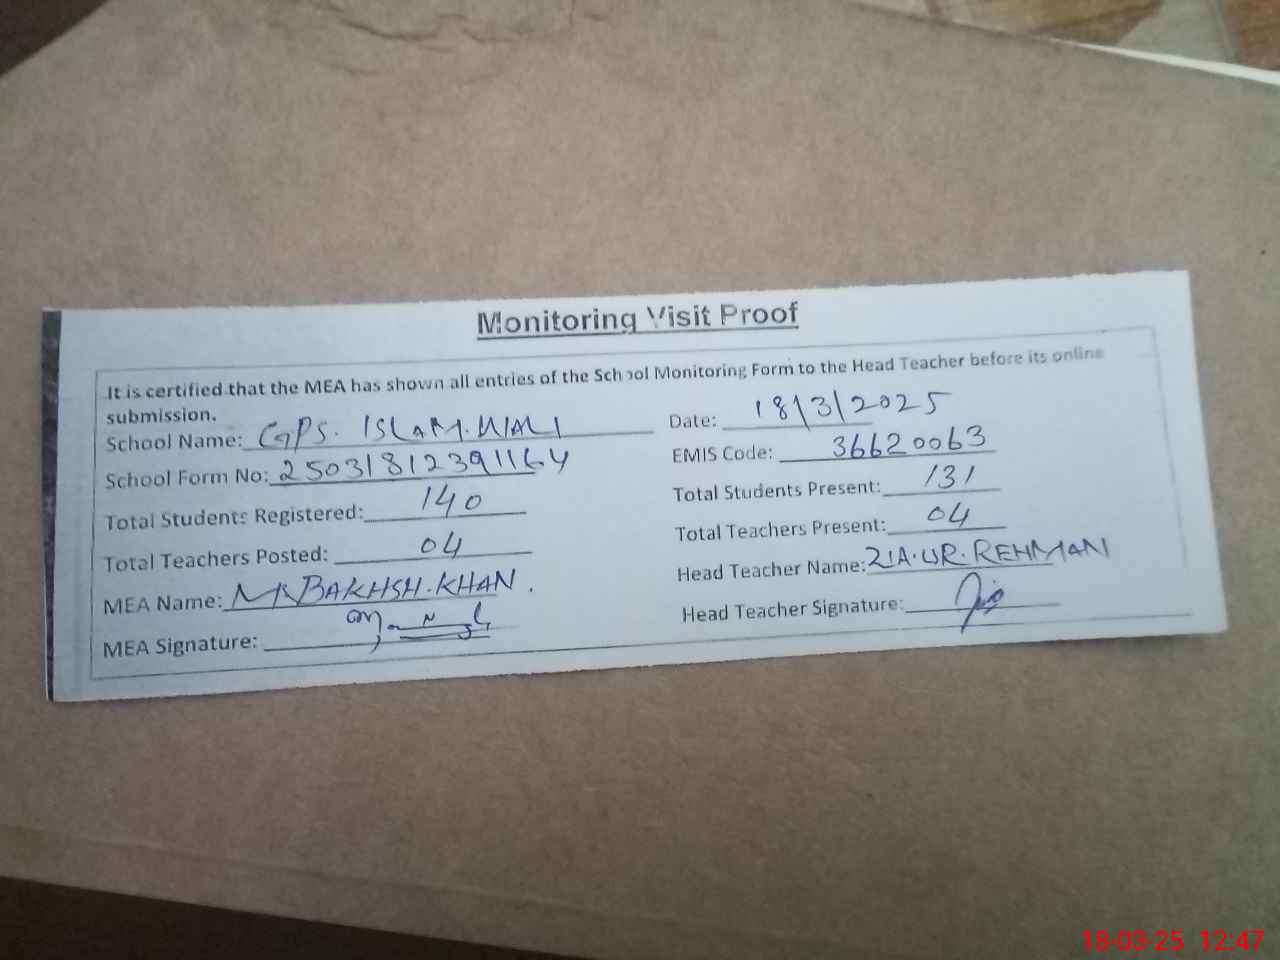 Monitoring Visit Proof
It is certified that the MEA has shown all entries of the School Monitoring Form to the Head Teacher before its online
submission.
School Name: GPS. ISLAM.WALI Date: 18/3/2025
School Form No: 25031812391164 EMIS Code: 36620063
Total Students Registered: 140 Total Students Present: 131
Total Teachers Posted: 04 Total Teachers Present: 04
MEA Name: M.BAKHSH.KHAN. Head Teacher Name: ZIA.UR.REHMAN
MEA Signature: Head Teacher Signature:
18-03-25 12:47